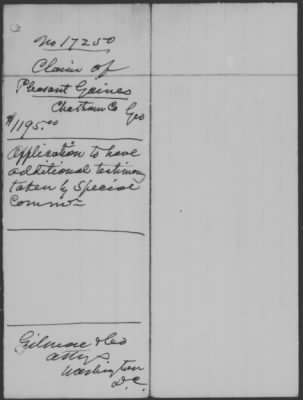 No 17250
Claim of
Pleasant Gaines
Chatham Co Geo
$1195.00
Application to have
additional testimony
taken by Special
Commr
Gilmore & Co
attys
Washington
D.C.